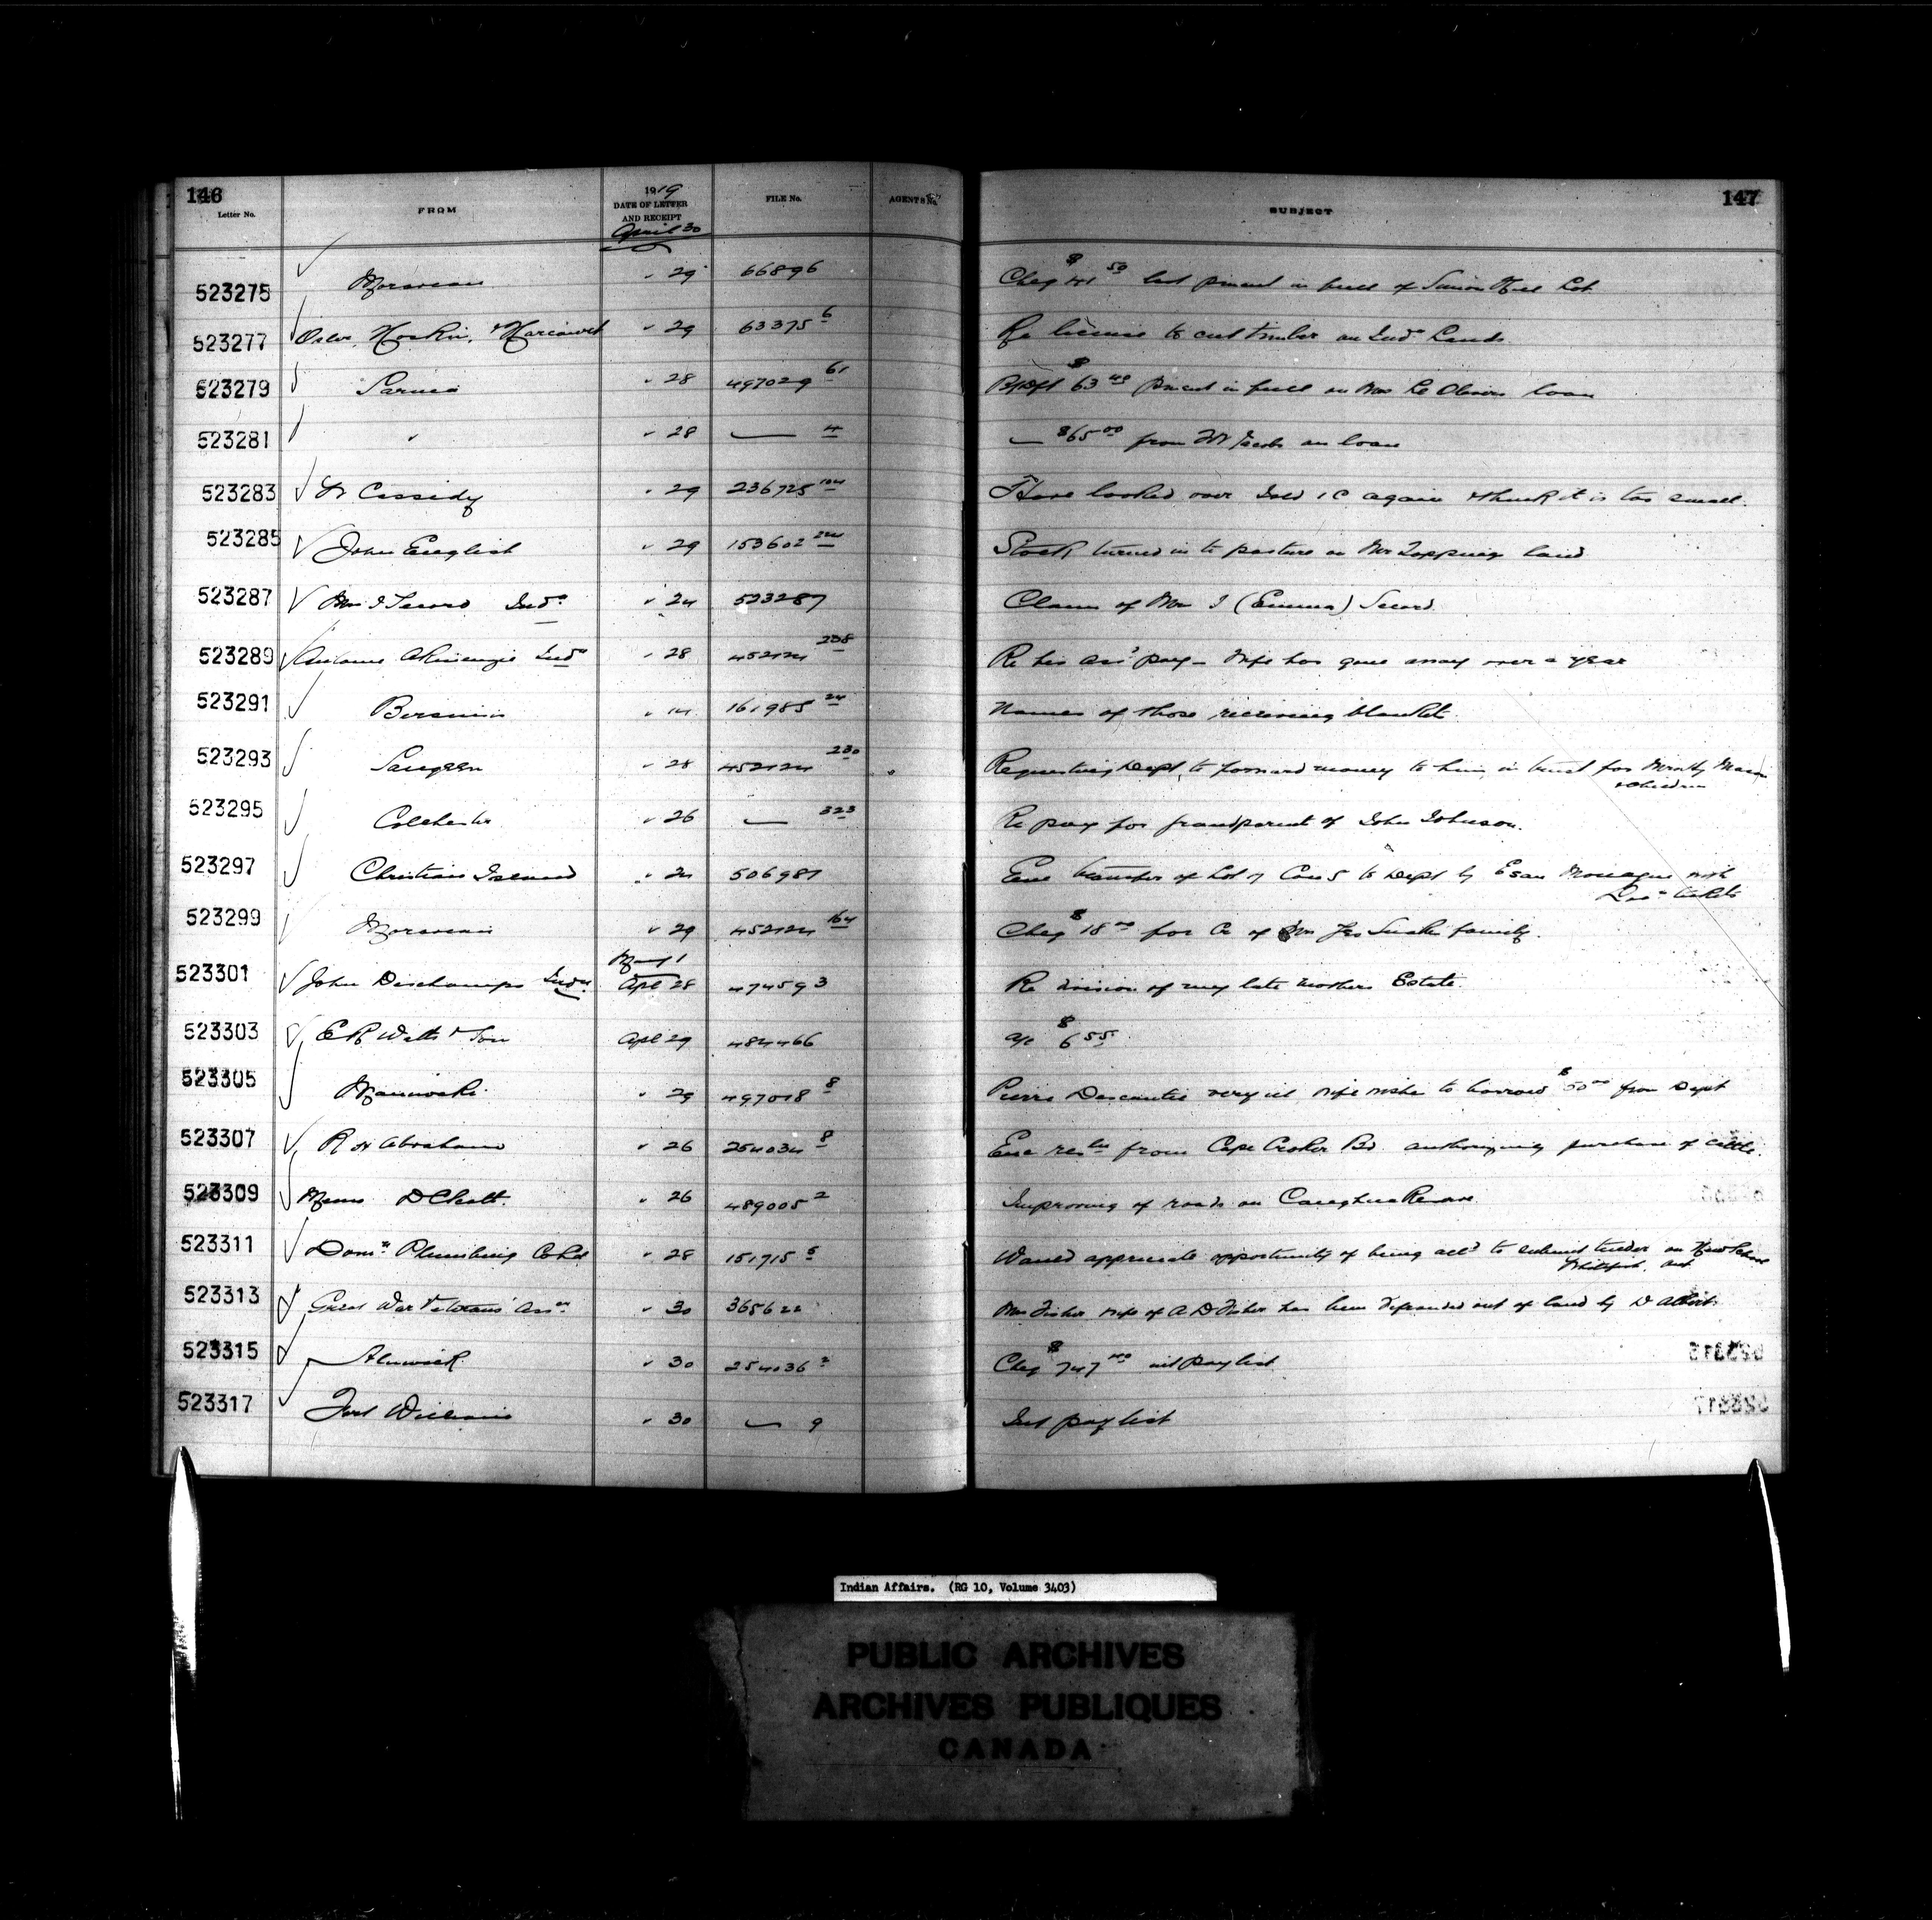 146
Letter No.
FROM
1919
DATE OF LETTER
AND RECEIPT
April 30
FILE No.
AGENTS No.
SUBJECT
147
523275 Moravian " 29 66896 Cheq $41 50 last pment in full of Simon Hill Lot
523277 Osler, Hoskin, & Harcourt " 29 63375 6 Re license to cut timber on Inds Lands
523279 Sarnia " 28 497029 61 $63 pment in full on Mrs loan
523281 " " 28 — 4 — $65 00 from Jacobs on loan
523283 Dr Cassidy " 29 236725 104 Have looked over 1 C again & think it is too small.
523285 John English " 29 153602 224 Stock turned in to pasture on Mr Topping land
523287 Mrs I Secord Inds " 24 523287 Claim of Mrs I (Emma) Secord.
523289 Antoine Akiwenzie Inds " 28 452124 238 Re his ass' pay – Wife has gone away over a year
523291 Bersimis " 14 161985 24 Names of those receiving blankets.
523293 Saugeen " 28 452124 230 Requesting Dept, to forward money to him, in trust for Mason
& children
523295 Colchester " 26 — 323 Re pay for grandparent of John Johnson.
523297 Christian Island " 24 506987 Enc transfer of Lot 7 Con 5 to Dept by Esau Monague with
Loc tickets
523299 Moravian " 29 452124 164 Cheq $18 00 for Cr of Mrs Jas Snake family.
523301 John Deschamps Inds May 1
Apl 28 474593 Re division of my late mothers Estate.
523303 E R Watts & Son Apl 29 484466 a/c $6 55
523305 Maniwaki " 29 497018 8 Pierre Descantie very ill, wife wishes to borrow $50 00 from Dept
523307 R H Abraham " 26 254034 8 Enc reslu from Cape Croker Bd. authorizing purchase of cattle.
523309 " 26 489005 2 Improving of roads on Caughna Reserve
523311 Domn Plumbing Co Ltd " 28 151715 5 Would appreciate opportunity of being all'd to submit tender on New School
Whitefish, Ont
523313 Great War Veterans' Assn " 30 365622 Mrs Fisher wife of A D Fisher has been defrauded out of land by D
523315 Alnwick " 30 254036 2 Cheq $747 int paylist
523317 Fort William " 30 — 9 Int paylist
523315
523317
Indian Affairs. (RG 10, Volume 3403)
PUBLIC ARCHIVES
ARCHIVES PUBLIQUES
CANADA